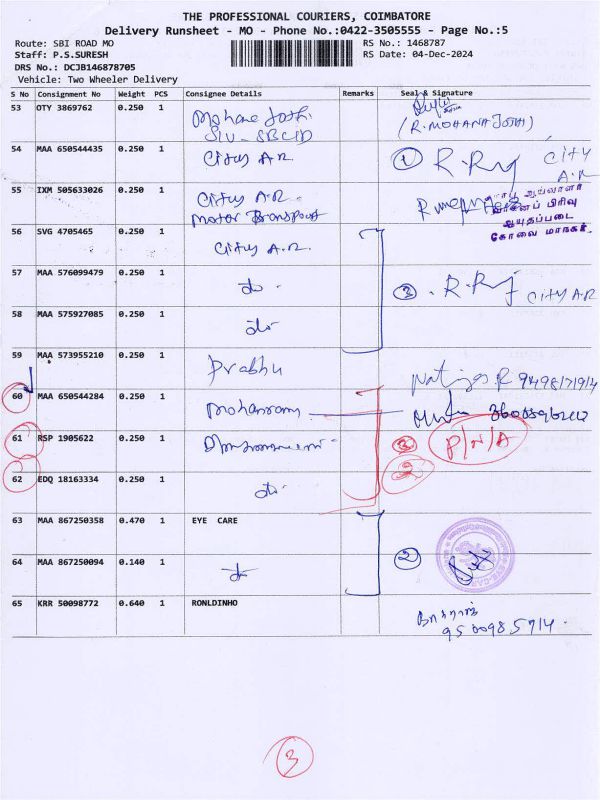 THE PROFESSIONAL COURIERS, COIMBATORE
Delivery Runsheet - MO - Phone No.:0422-3505555 - Page No.:5
Route: SBI ROAD MO
RS No.: 1468787
Staff: P.S.SURESH
RS Date: 04-Dec-2024
DRS No.: DCJB146878705
Vehicle: Two Wheeler Delivery
S No Consignment No Weight PCS Consignee Details Remarks Seal & Signature
53 OTY 3869762 0.250 1 Mohana Jothi
SIU-SBCID (R.MOHANA JOTHI)
54 MAA 650544435 0.250 1 City A.R. 1 R.Raj CITY A.R
55 IXM 505633026 0.250 1 City A.R.
Motor Transport
ஆய்வாளர்
வாகனப் பிரிவு
ஆயுதப்படை
கோவை மாநகர்.
56 SVG 4705465 0.250 1 City A.R.
57 MAA 576099479 0.250 1 do. 3 R.Raj CITY A.R
58 MAA 575927085 0.250 1 do.
59 MAA 573955210 0.250 1 Prabhu
60 MAA 650544284 0.250 1 Mohanram
61 RSP 1905622 0.250 1 P/N/A
62 EDQ 18163334 0.250 1 do. 2
63 MAA 867250358 0.470 1 EYE CARE
64 MAA 867250094 0.140 1 do 2
65 KRR 50098772 0.640 1 RONLDINHO
3